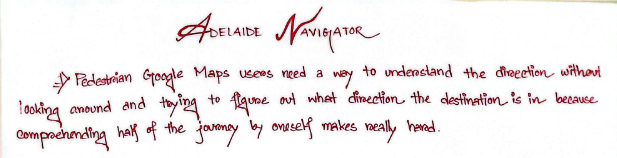 ADELAIDE NAVIGATOR
⇒ Pedestrian Google Maps users need a way to understand the direction without
looking around and trying to figure out what direction the destination is in because
comprehending half of the journey by oneself makes really hard.